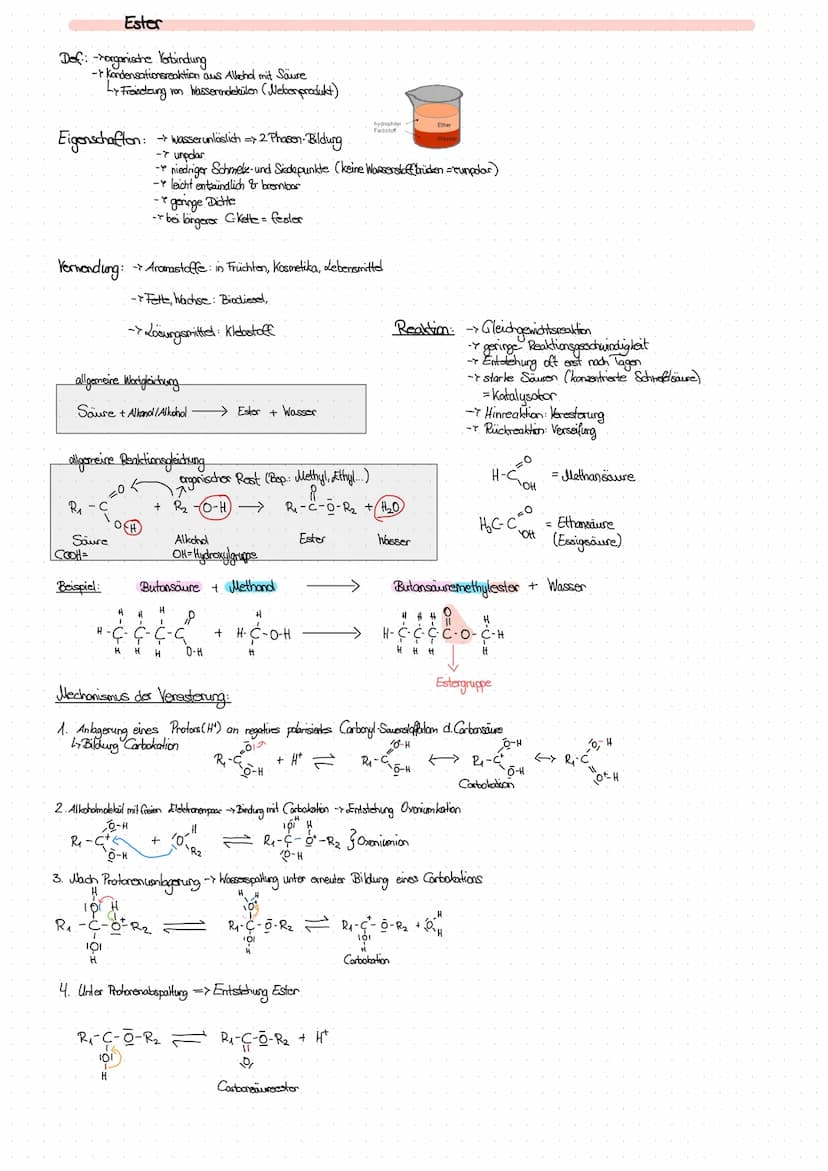 Ester
Def.: → organische Verbindung
→ Kondensationsreaktion aus Alkohol mit Säure
↳ Freisetzung von Wassermolekülen (Nebenprodukt)
Eigenschaften: → wasserunlöslich => 2 Phasen-Bildung
→ unpolar
→ niedriger Schmelz- und Siedepunkte (keine Wasserstoffbrücken = unpolar)
→ leicht entzündlich & brennbar
→ geringe Dichte
→ bei längerer C-Kette = fester
hydrophiler
Farbstoff
Ether
Wasser
Verwendung: → Aromastoffe: in Früchten, Kosmetika, Lebensmittel
→ Fette, Wachse: Biodiesel,
→ Lösungsmittel: Klebstoff
Reaktion: → Gleichgewichtsreaktion
→ geringe Reaktionsgeschwindigkeit
→ Entstehung oft erst nach Tagen
→ starke Säuren (konzentrierte Schwefelsäure)
= Katalysator
→ Hinreaktion: Veresterung
→ Rückreaktion: Verseifung
allgemeine Wortgleichung
Säure + Alkanol/Alkohol → Ester + Wasser
allgemeine Reaktionsgleichung
organischer Rest (Bsp.: Methyl, Ethyl...)
R₁-C =O O-H + R₂-O-H → R₁-C(=O)-O-R₂ + H₂O
Säure Alkohol Ester Wasser
COOH= OH=Hydroxylgruppe
H-C =O OH = Methansäure
H₃C-C =O OH = Ethansäure
(Essigsäure)
Beispiel: Butansäure + Methanol → Butansäuremethylester + Wasser
H-C-C-C-C O O-H + H-C-O-H → H-C-C-C-C-O-C-H
Estergruppe
Mechanismus der Veresterung:
1. Anlagerung eines Protons (H⁺) an negatives polarisiertes Carbonyl-Sauerstoffatom d. Carbonsäure
↳ Bildung Carbokation
R₁-C O O-H + H⁺ ⇌ R₁-C O-H O-H ↔ R₁-C⁺ O-H O-H ↔ R₁-C O-H O⁺-H
Carbokation
2. Alkoholmolekül mit freien Elektronenpaar → Bindung mit Carbokation → Entstehung Oxoniumkation
R₁-C⁺ O-H O-H + O H R₂ ⇌ R₁-C-O⁺-R₂ } Oxoniumion
3. Nach Protonenumlagerung → Wasserspaltung unter erneuter Bildung eines Carbokations
R₁-C-O⁺-R₂ ⇌ R₁-C-O-R₂ ⇌ R₁-C⁺-O-R₂ + O H H
Carbokation
4. Unter Protonenabspaltung => Entstehung Ester
R₁-C-O-R₂ ⇌ R₁-C-O-R₂ + H⁺
Carbonsäureester